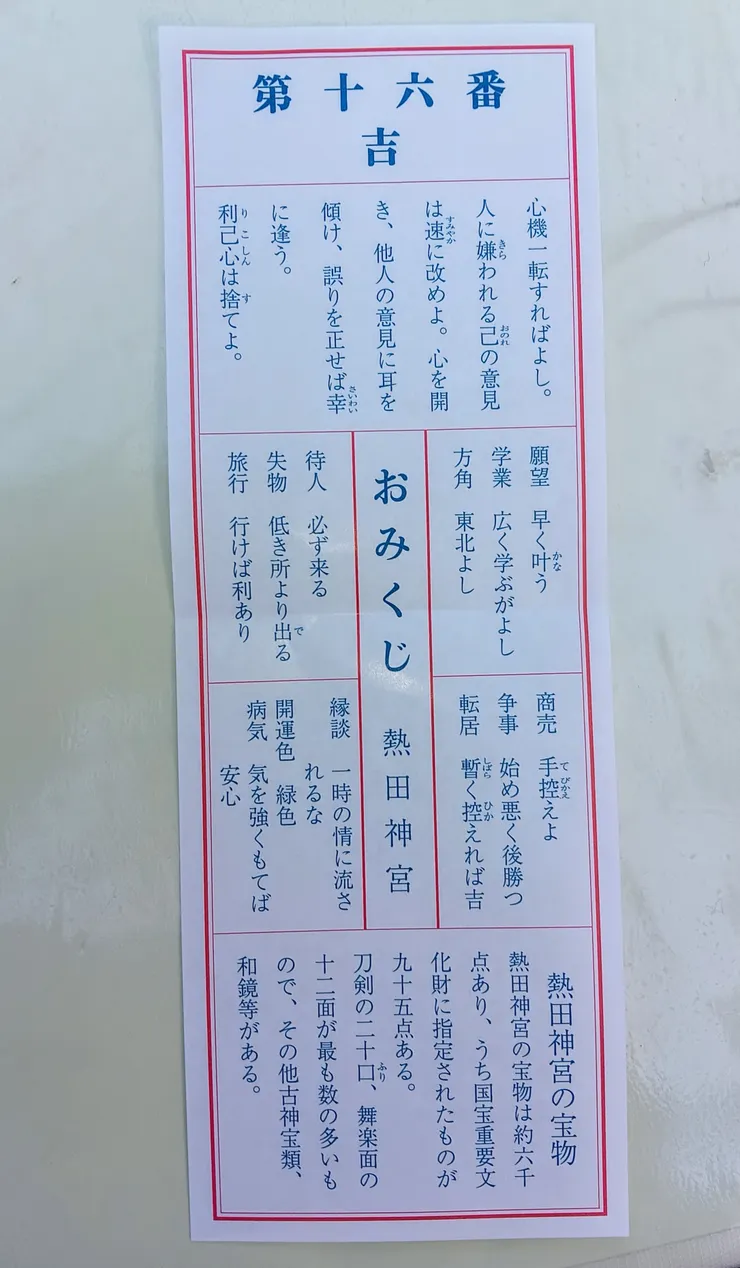 第十六番
吉
心機一転すればよし。
人に嫌われる己の意見
は速に改めよ。心を開
き、他人の意見に耳を
傾け、誤りを正せば幸
に逢う。
利己心は捨てよ。
願望 早く叶う
学業 広く学ぶがよし
方角 東北よし
商売 手控えよ
争事 始め悪く後勝つ
転居 暫く控えれば吉
おみくじ 熱田神宮
待人 必ず来る
失物 低き所より出る
旅行 行けば利あり
縁談 一時の情に流さ
れるな
開運色 緑色
病気 気を強くもてば
安心
熱田神宮の宝物
熱田神宮の宝物は約六千
点あり、うち国宝重要文
化財に指定されたものが
九十五点ある。
刀剣の二十口、舞楽面の
十二面が最も数の多いも
ので、その他古神宝類、
和鏡等がある。